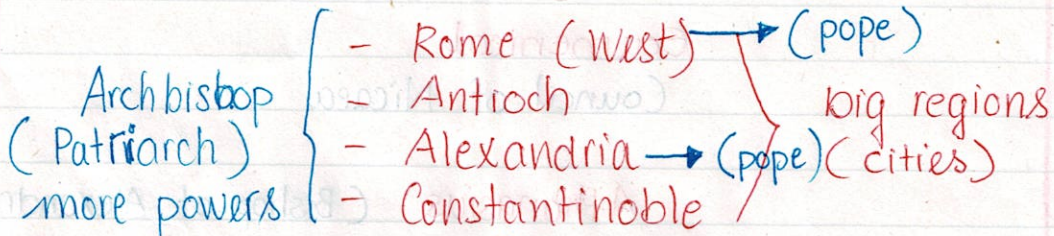 Archbishop
(Patriarch)
more powers
- Rome (West) → (pope)
- Antioch
- Alexandria → (pope)
- Constantinoble
big regions
(cities)